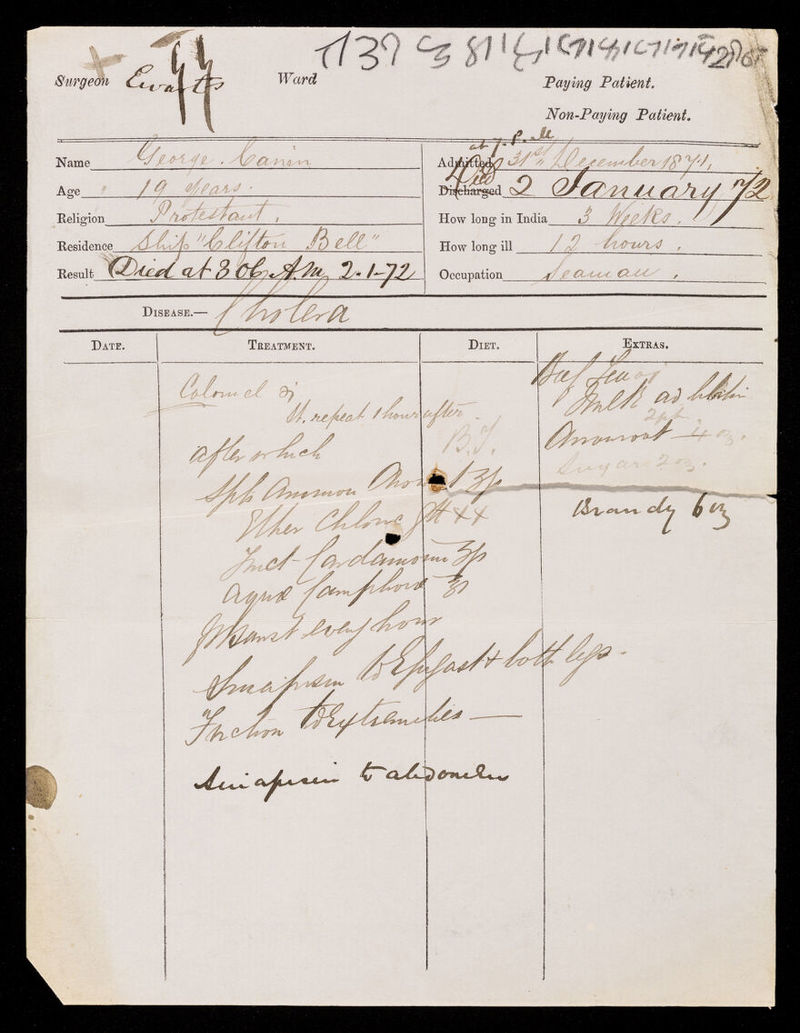 Surgeon Ewart Ward Paying Patient.
Non-Paying Patient.
Name George Canin
Admitted 31st December 1871,
Age 19 years.
Died Discharged 2 January /72
Religion Protestant.
How long in India 3 Weeks.
Residence Ship "Clifton Bell"
How long ill 12 hours.
Result Died at 3 A.M. 2-1-72
Occupation Seaman.
DISEASE.— Cholera
DATE. TREATMENT. DIET. EXTRAS.
Calomel
repeat 1 hour after
after which
Spts Ammon
Ether Chloric
Tinct Cardamom
Aqua Camphora
every hour
Sinapism to Epigast & both legs
Friction to Extremities —
Sinapism to abdomen
B.T.
Beef Tea
Milk ad
Arrowroot 4 oz.
Sugar 2 oz.
Brandy 6 oz